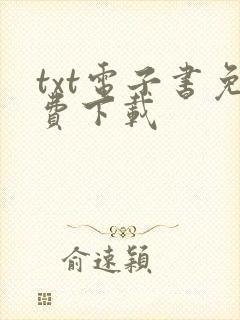 txt電子書免
費下載
俞遠穎